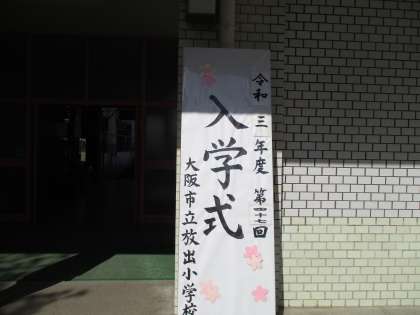 令和三年度 第四十七回
入学式
大阪市立放出小学校